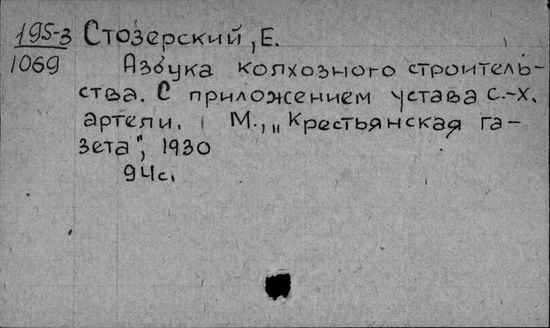 195-3 Стозерский, Е.
1069 Азбука колхозного строитель-
ства. С приложением устава с.-х.
артели. М., „Крестьянская га-
зета", 1930
94с.